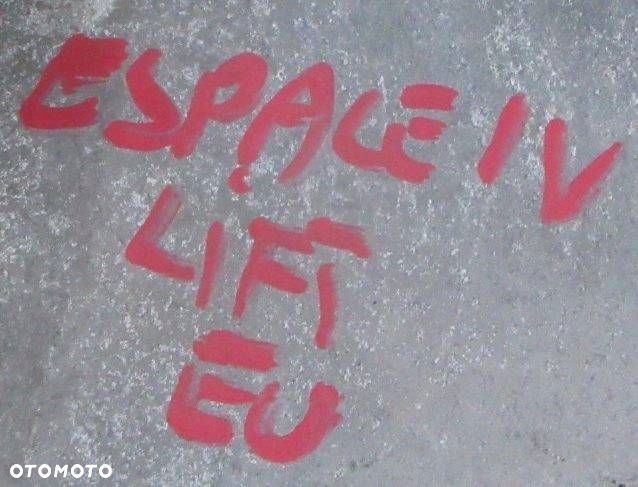 ESPACE IV
LIFT
EU
OTOMOTO